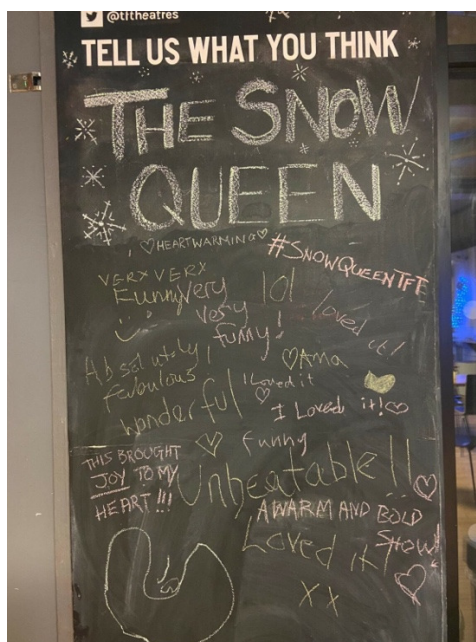 @tftheatres
TELL US WHAT YOU THINK
THE SNOW
QUEEN
♡HEARTWARMING♡
#SNOWQUEENTFT
VERY VERY
Funny
Very
very
funny!
lol
loved it!
Absolutely
fabulous
♡Ama
I Loved it
wonderful
I Loved it!♡
Funny
THIS BROUGHT
JOY TO MY
HEART!!!
Unbeatable!!
A WARM AND BOLD
SHOW!
Loved it!
XX